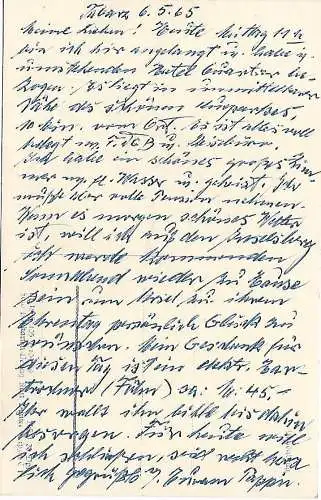 Tabarz 6.5.65
Meine Lieben! Heute Mittag 11 h
bin ich hier angelangt u. habe
im Hotel Quartier be-
zogen. Es liegt in unmittelbarer
Nähe des schönen Kurparkes,
10 Min. vom Ort. Es ist alles voll
belegt v. FDGB u. Reisebüro.
Ich habe ein schönes großes Zim-
mer m. fl. Wasser u. geheizt. Ich
mußte aber volle Pension nehmen.
Wenn es morgen schönes Wetter
ist, will ich auf den Inselsberg
Ich werde kommenden
Sonnabend wieder zu Hause
sein um Ursel zu ihrem
Ehrentag persönlich Glück zu
wünschen. Mein Geschenk für
diesen Tag ist ein elektr.
(Föhn) ca. M. 45.–
Ihr wollt ihn bitte bis dahin
besorgen. Für heute will
ich schließen, seid recht herz-
lich gegrüßt v. Euerm Pappa.